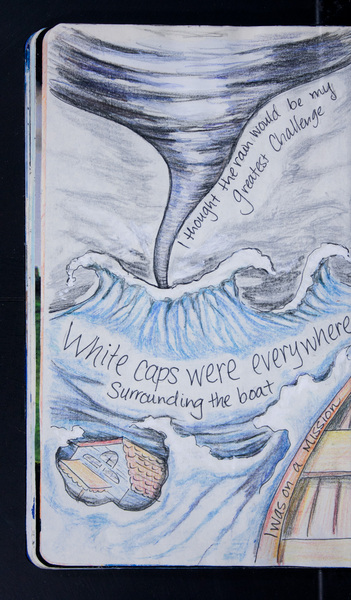 I thought the rain would be my
greatest Challenge
White caps were everywhere
Surrounding the boat
I was on a Mission